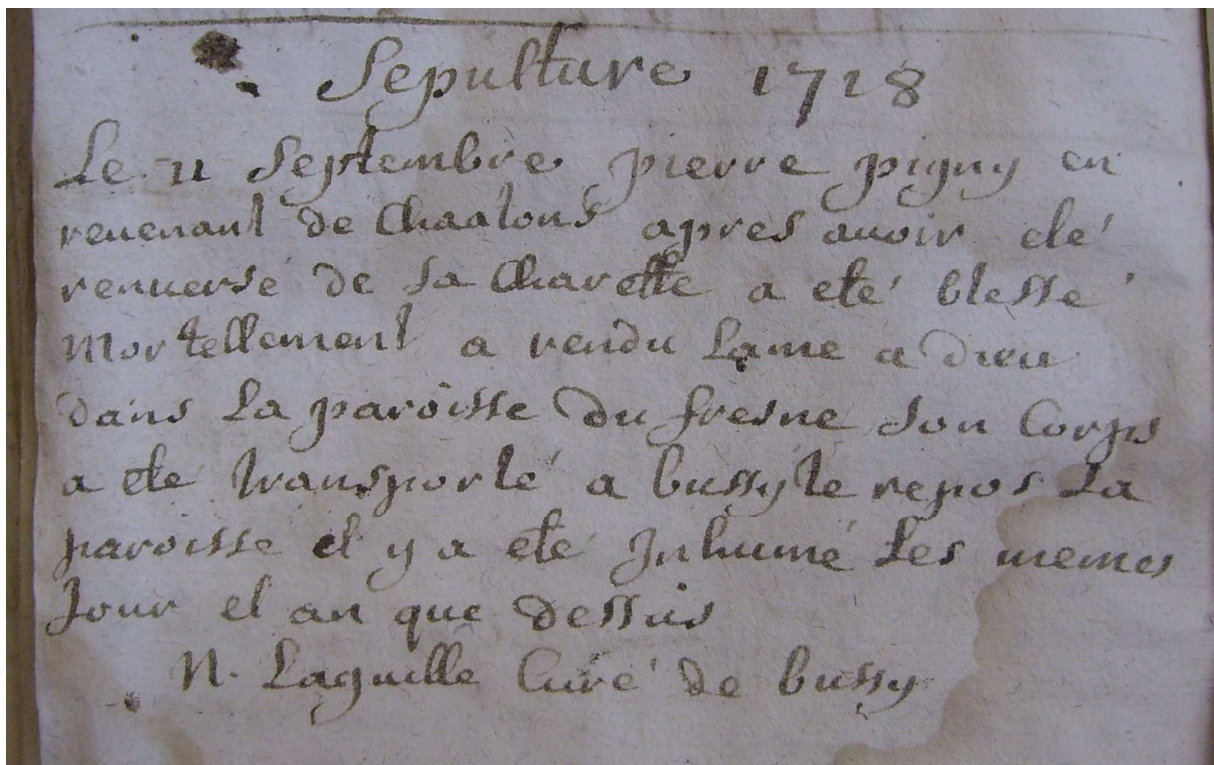 Sepulture 1718
Le 11 Septembre pierre pigny en
reuenant de Chaalons apres auoir eté
renuersé de sa Charette a eté blessé
Mortellement a rendu Lame a dieu
dans La paroisse du fresne son Corps
a ete transporté a bussy le repos La
paroisse et y a eté Inhumé Les memes
Jour et an que dessus
N. Laguille Curé de bussy